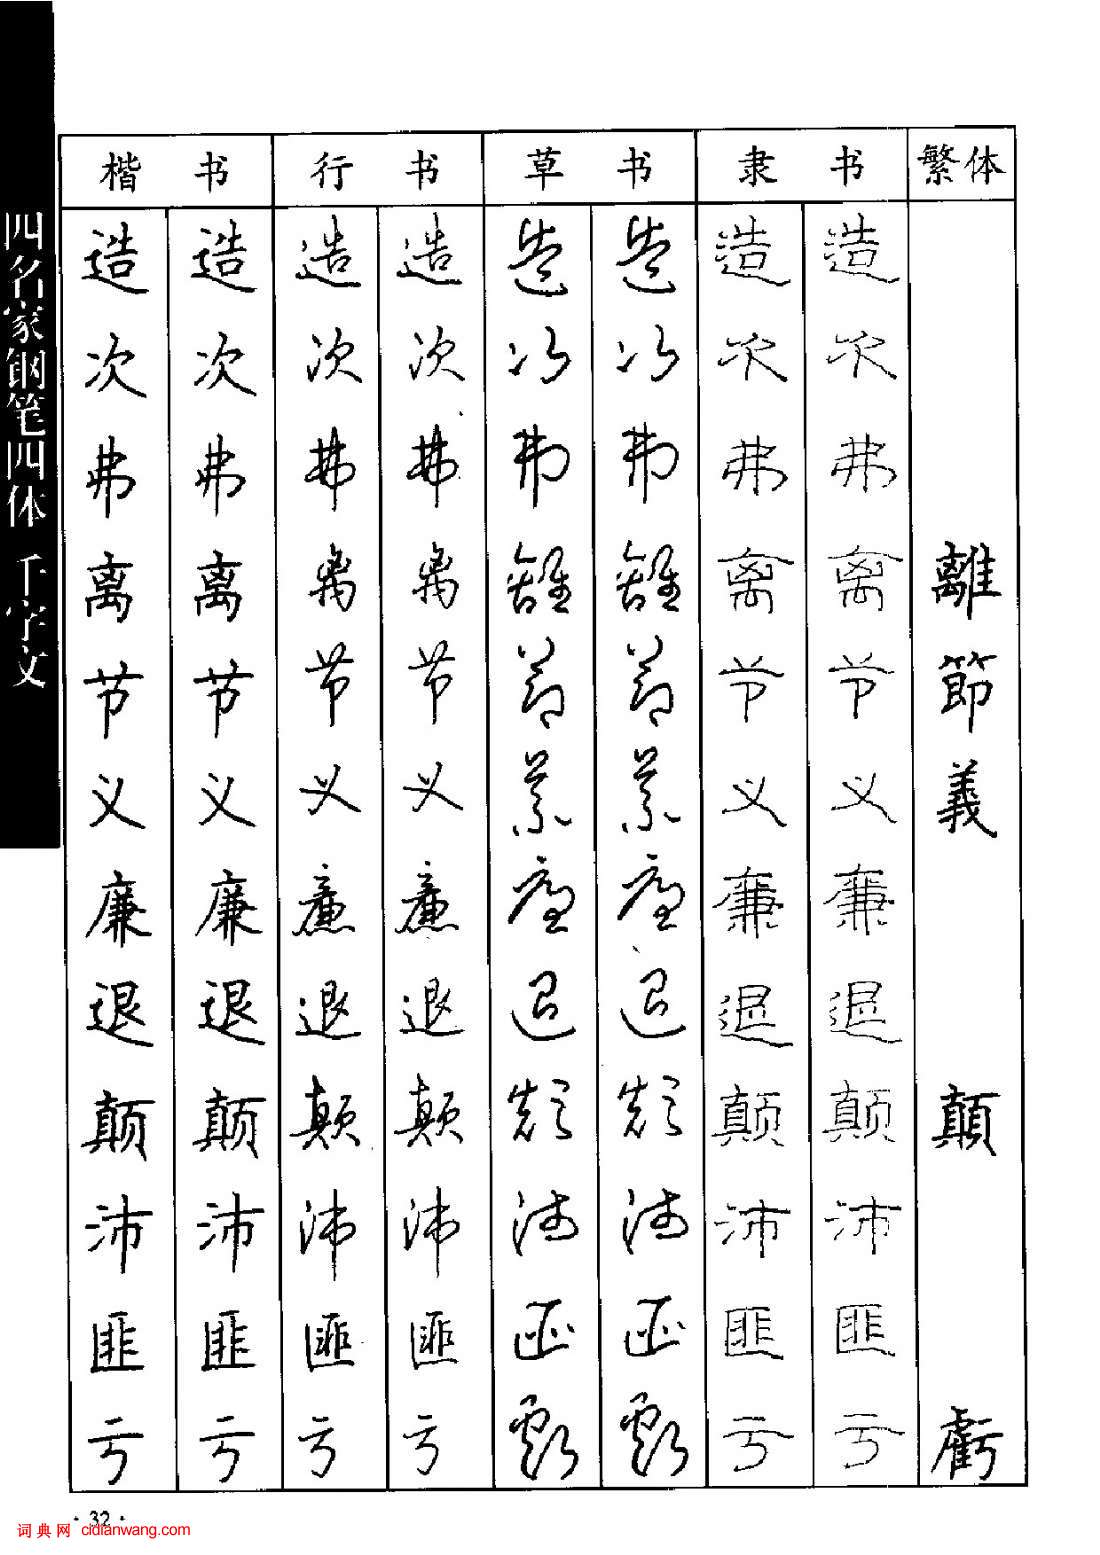 四名家钢笔四体 千字文
楷书 行书 草书 隶书 繁体
造 造 造 造 造 造 造 造
次 次 次 次 次 次 次 次
弗 弗 弗 弗 弗 弗 弗 弗
离 离 离 离 離 離 离 离 離
节 节 节 节 節 節 节 节 節
义 义 义 义 義 義 义 义 義
廉 廉 廉 廉 廉 廉 廉 廉
退 退 退 退 退 退 退 退
颠 颠 颠 颠 顛 顛 颠 颠 顛
沛 沛 沛 沛 沛 沛 沛 沛
匪 匪 匪 匪 匪 匪 匪 匪
亏 亏 亏 亏 虧 虧 亏 亏 虧
·32·
词典网 cidianwang.com